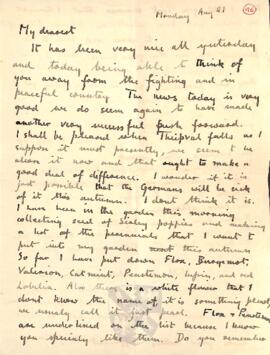 Monday Aug 28
96
My dearest
It has been very nice all yesterday
and today being able to think of
you away from the fighting and in
peaceful country The news today is very
good we do seem again to have made
another very successful push forward.
I shall be pleased when Thiepval falls as I
suppose it must presently we seem to be
above it now and that ought to make a
good deal of difference. I wonder if it is
just possible that the Germans will be sick
of it this autumn. I dont think it is.
I have been in the garden this morning
collecting seed of Shirley poppies and making
a list of the perennials that I want to
put into my garden next this autumn.
So far I have put down Flox, Bergamot,
Valerian, Catmint, Penstemon, Lupin, and red
Lobelia. Also there is a white flower that I
dont know the name of it is something
we usually call it just pearl. Flox & Penstemon
are underlined on the list because I know
you specially like them. Do you remember